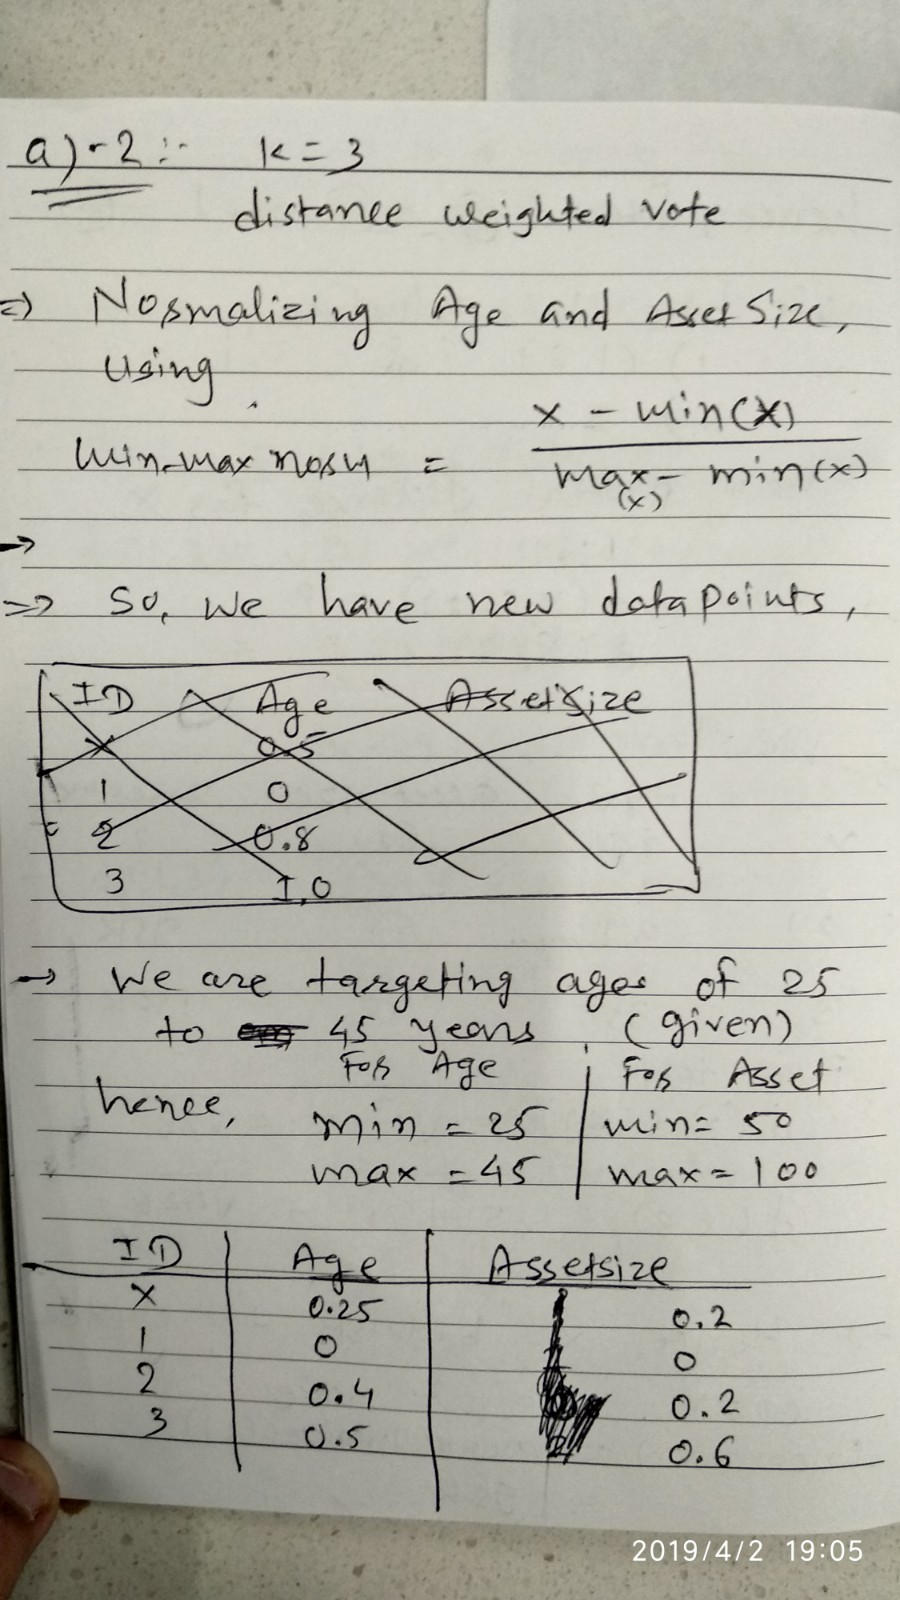 a) - 2 :- k = 3
distance weighted vote
=> Normalizing Age and Asset Size,
Using
min-max norm = x - min(x)
max(x) - min(x)
→
=> So, we have new datapoints,
ID Age AssetSize
X 0.5
1 0
2 0.8
3 1.0
→ We are targeting ages of 25
to 45 years. (given)
For Age For Asset
hence, min = 25 min = 50
max = 45 max = 100
ID Age Assetsize
X 0.25 0.2
1 0 0
2 0.4 0.2
3 0.5 0.6
2019/4/2 19:05